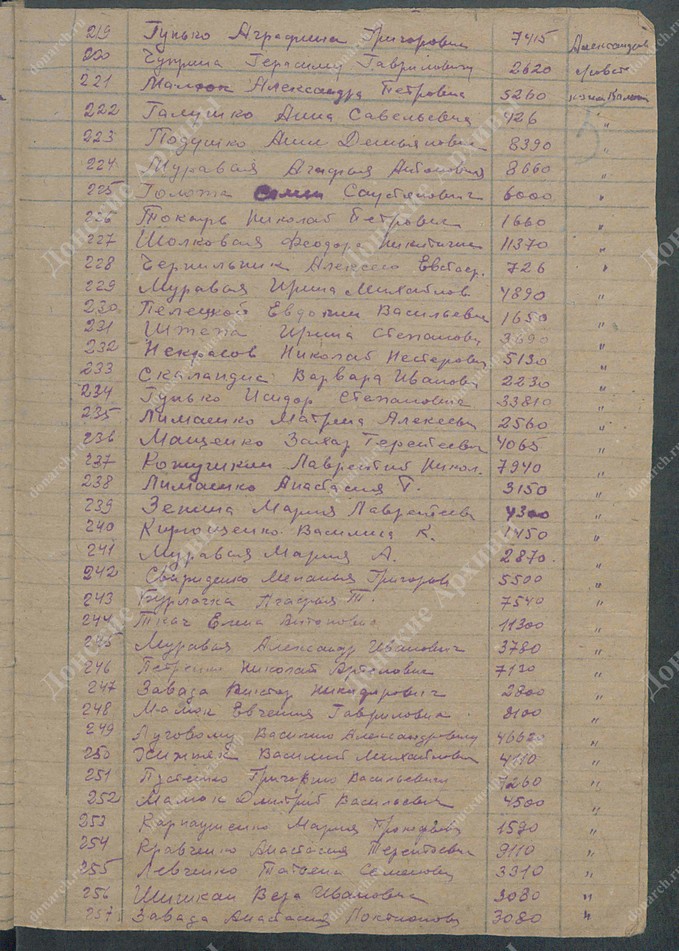 219 Гунько Аграфина Григоровна 7415 Александров
220 Чуприна Герасиму Гаврилович 2620 "
221 Мамон Александра Петровна 5260
222 Галушко Анна Савельевна 426 "
223 Подушко Анна Демьянович 8390 "
224 Муравая Агафья Антоновна 8660 "
225 Голота Семен 6000 "
226 Токарь Николай Петрович 1660 "
227 Шолковая Феодора Никитична 11370 "
228 Чернильник Алексею 726 "
229 Муравая Ирина Михайлов 4890 "
230 Пелецкой Евдокии Васильевн 1650 "
231 Ирина Степановн 3690 "
232 Некрасов Николай Нестерович 5130 "
233 Скаландис Варвара Ивановн 2230 "
234 Гунько Исидор Степанович 33810 "
235 Лимаенко Матрена Алексевн 2560 "
236 Мащенко Захар Терентьевич 4065 "
237 Лаврентий Никол. 7940 "
238 Лимаенко Анастасия Г. 3150 "
239 Зенина Мария Лаврентьевн 4300 "
240 Василиса К. 1450 "
241 Муравая Мария А. 2870. "
242 Меланья Григоров 5500 "
243 Бурлачка Агафья Т. 7540 "
244 Ткач Елена 11300 "
245 Муравая Александр Иванович 3780 "
246 Петренко Николай Артемович 7120 "
247 Завада Виктор Никифорович 2800 "
248 Мамон Евгения Гавриловна 8100 "
249 Луговому Василию Александровичу 46620 "
250 Хижняк Василий Михайлович 4110 "
251 Григорию Васильевичу 7260 "
252 Мамон Дмитрий Васильевич 4500 "
253 Карнаушенко Мария 1590 "
254 Кравченко Анастасия Терентьевн 9110 "
255 Левченко Татьяна Семеновн 3310 "
256 Шишкан Вера Ивановна 3080 "
257 Завада Анастасия 3080 "
Донские Архивы
donarch.ru